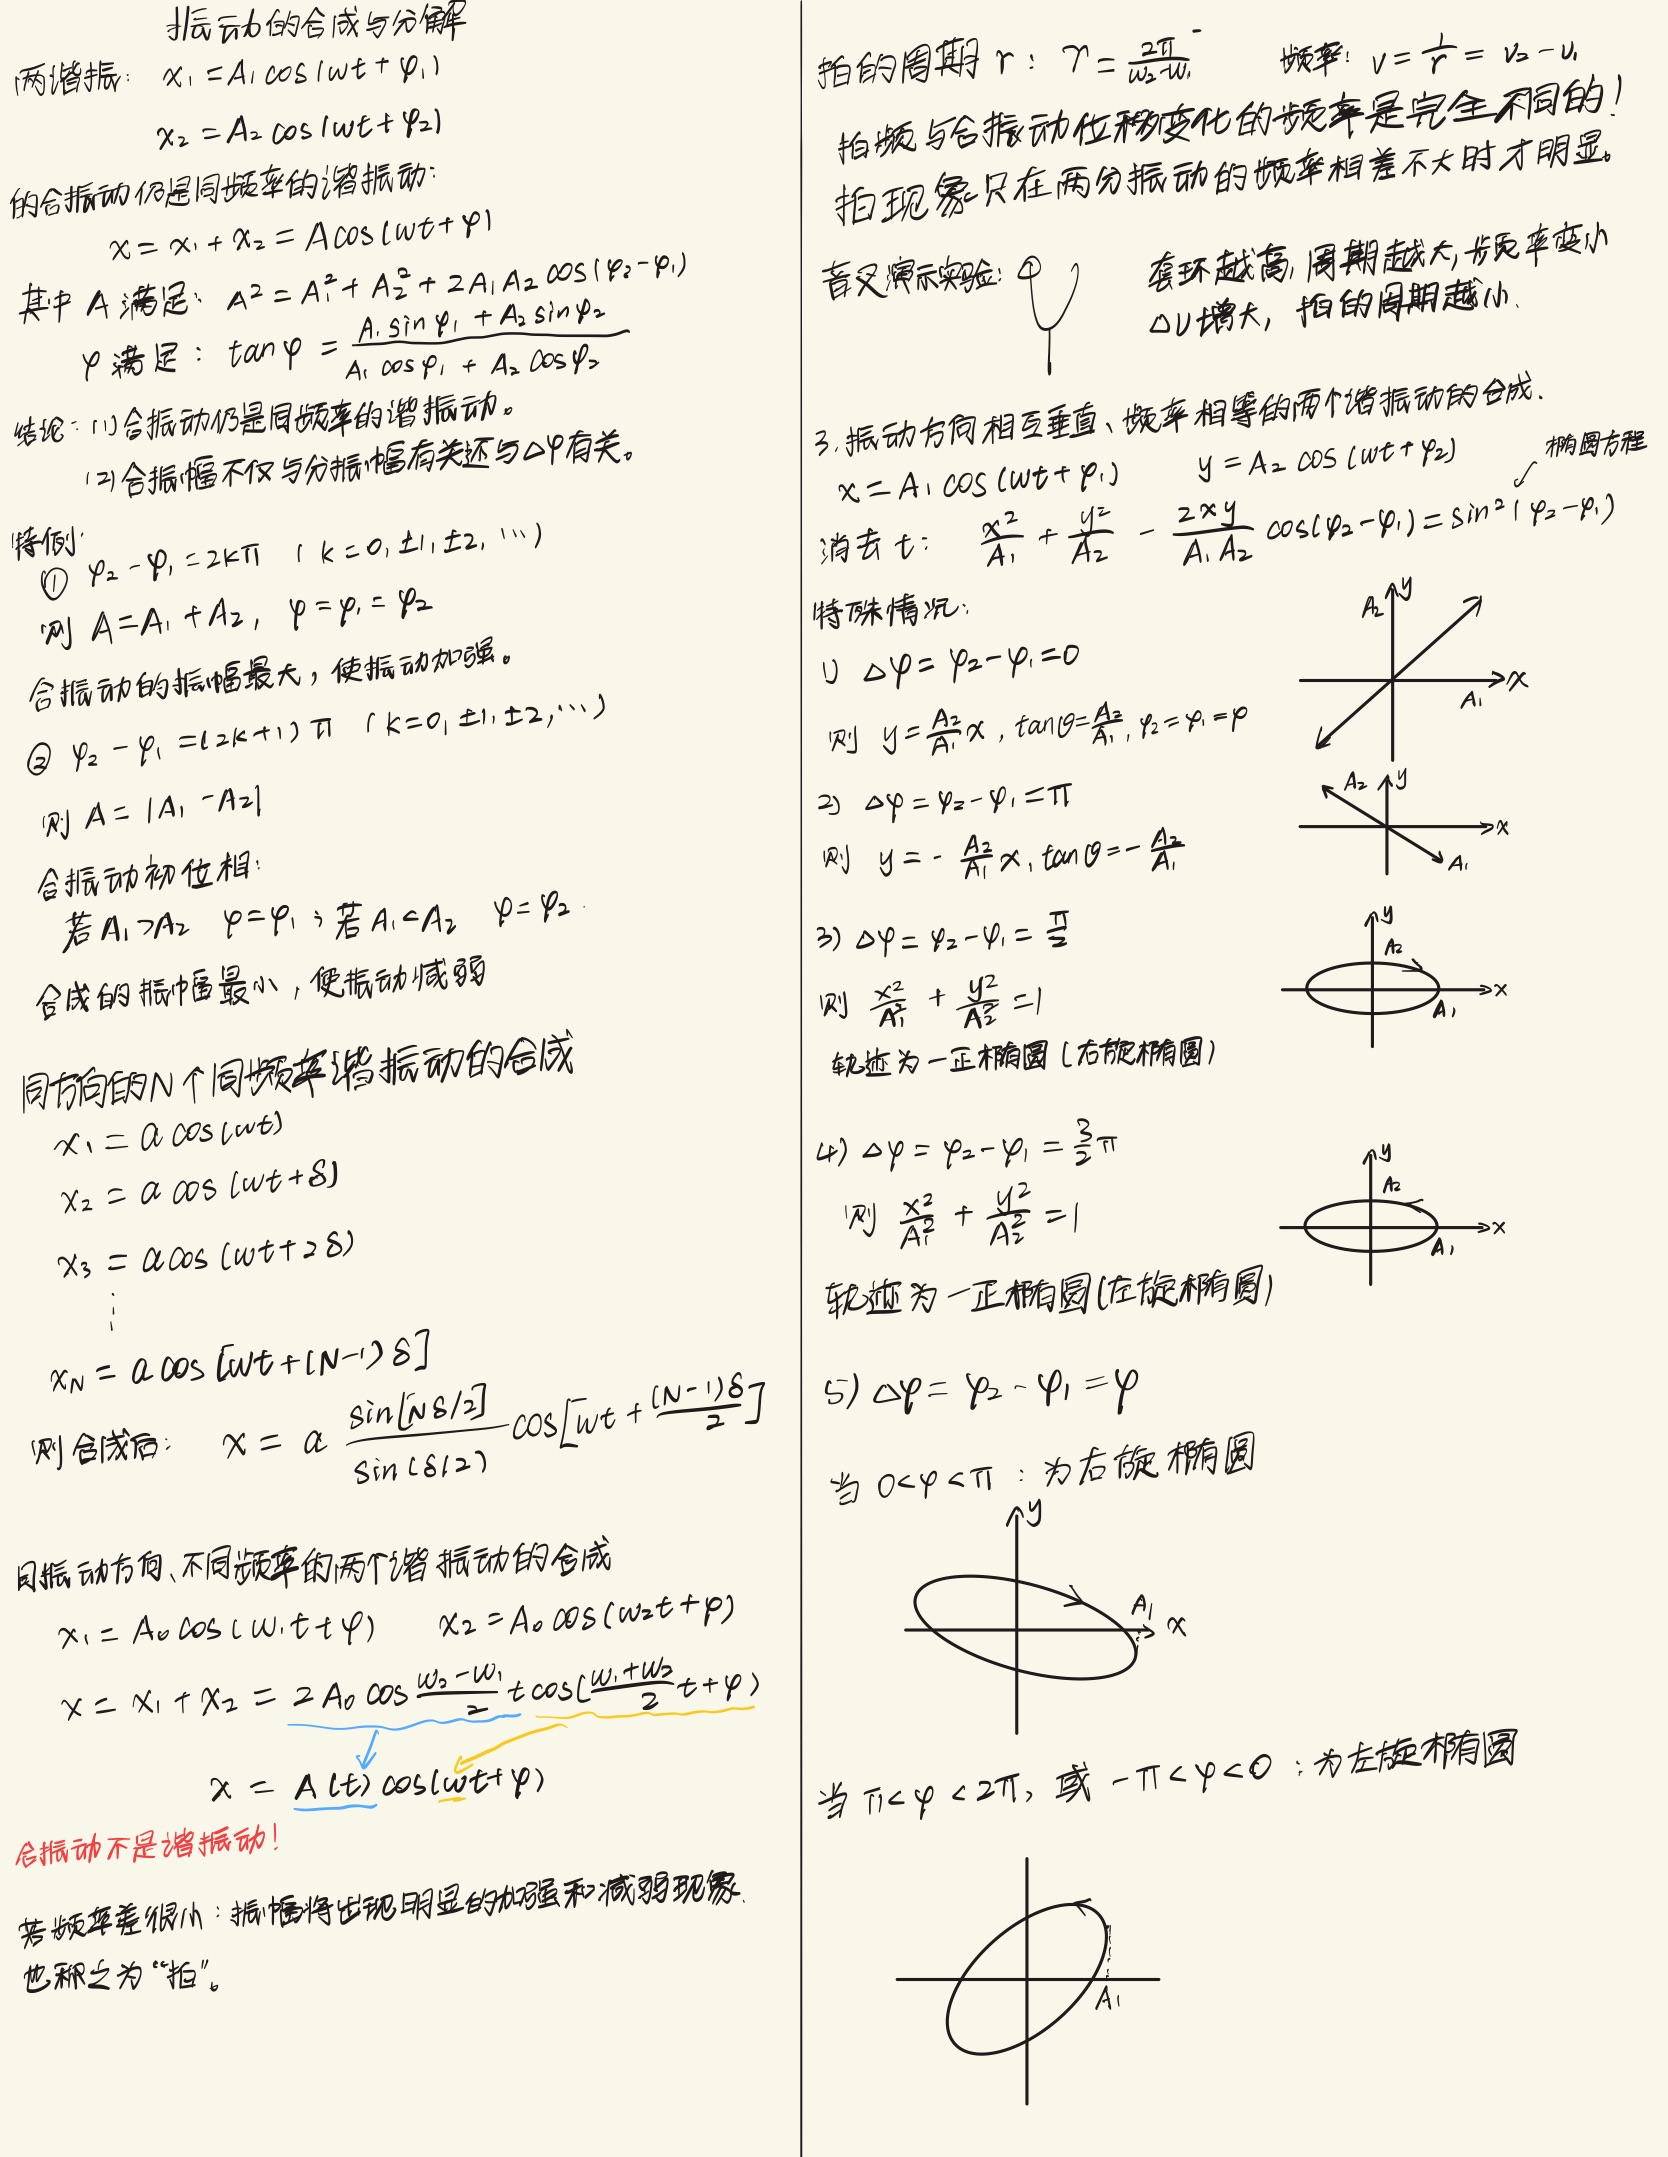 振动的合成与分解
两谐振: x₁ = A₁ cos(ωt + φ₁)
x₂ = A₂ cos(ωt + φ₂)
的合振动仍是同频率的谐振动:
x = x₁ + x₂ = A cos(ωt + φ)
其中 A 满足: A² = A₁² + A₂² + 2A₁A₂ cos(φ₂-φ₁)
φ 满足: tanφ = (A₁ sinφ₁ + A₂ sinφ₂)/(A₁ cosφ₁ + A₂ cosφ₂)
结论: (1) 合振动仍是同频率的谐振动。
(2) 合振幅不仅与分振幅有关还与△φ有关。
特例:
① φ₂ - φ₁ = 2kπ (k = 0, ±1, ±2, …)
则 A = A₁ + A₂, φ = φ₁ = φ₂
合振动的振幅最大, 使振动加强。
② φ₂ - φ₁ = (2k+1)π (k=0, ±1, ±2, …)
则 A = |A₁ - A₂|
合振动初位相:
若 A₁>A₂ φ=φ₁; 若 A₁<A₂ φ=φ₂.
合成的振幅最小, 使振动减弱
同方向的N个同频率谐振动的合成
x₁ = a cos(ωt)
x₂ = a cos(ωt+δ)
x₃ = a cos(ωt+2δ)
⋮
x_N = a cos[ωt+(N-1)δ]
则合成后: x = a sin[Nδ/2]/sin(δ/2) cos[ωt + (N-1)δ/2]
同振动方向、不同频率的两个谐振动的合成
x₁ = A₀ cos(ω₁t+φ) x₂ = A₀ cos(ω₂t+φ)
x = x₁ + x₂ = 2A₀ cos (ω₂-ω₁)/2 t cos((ω₁+ω₂)/2 t+φ)
x = A(t) cos(ωt+φ)
合振动不是谐振动!
若频率差很小: 振幅将出现明显的加强和减弱现象.
也称之为“拍”。
拍的周期 τ: τ = 2π/(ω₂-ω₁) 频率: ν = 1/τ = ν₂ - ν₁
拍频与合振动位移变化的频率是完全不同的!
拍现象只在两分振动的频率相差不大时才明显。
音叉演示实验:
套环越高, 周期越大, 频率变小
△ν增大, 拍的周期越小.
3. 振动方向相互垂直、频率相等的两个谐振动的合成.
x = A₁ cos(ωt+φ₁) y = A₂ cos(ωt+φ₂)
椭圆方程
消去 t: x²/A₁ + y²/A₂ - 2xy/(A₁A₂) cos(φ₂-φ₁) = sin²(φ₂-φ₁)
特殊情况:
1) △φ = φ₂-φ₁ = 0
则 y = A₂/A₁ x, tanθ = A₂/A₁, φ₂ = φ₁ = φ
A₂ y
A₁ x
2) △φ = φ₂-φ₁ = π
则 y = - A₂/A₁ x, tanθ = - A₂/A₁
A₂ y
x
A₁
3) △φ = φ₂-φ₁ = π/2
则 x²/A₁² + y²/A₂² = 1
轨迹为一正椭圆 (右旋椭圆)
y
A₂
x
A₁
4) △φ = φ₂-φ₁ = 3/2 π
则 x²/A₁² + y²/A₂² = 1
轨迹为一正椭圆 (左旋椭圆)
y
A₂
x
A₁
5) △φ = φ₂-φ₁ = φ
当 0<φ<π : 为右旋椭圆
y
A₁
x
当 π<φ<2π, 或 -π<φ<0 : 为左旋椭圆
A₁